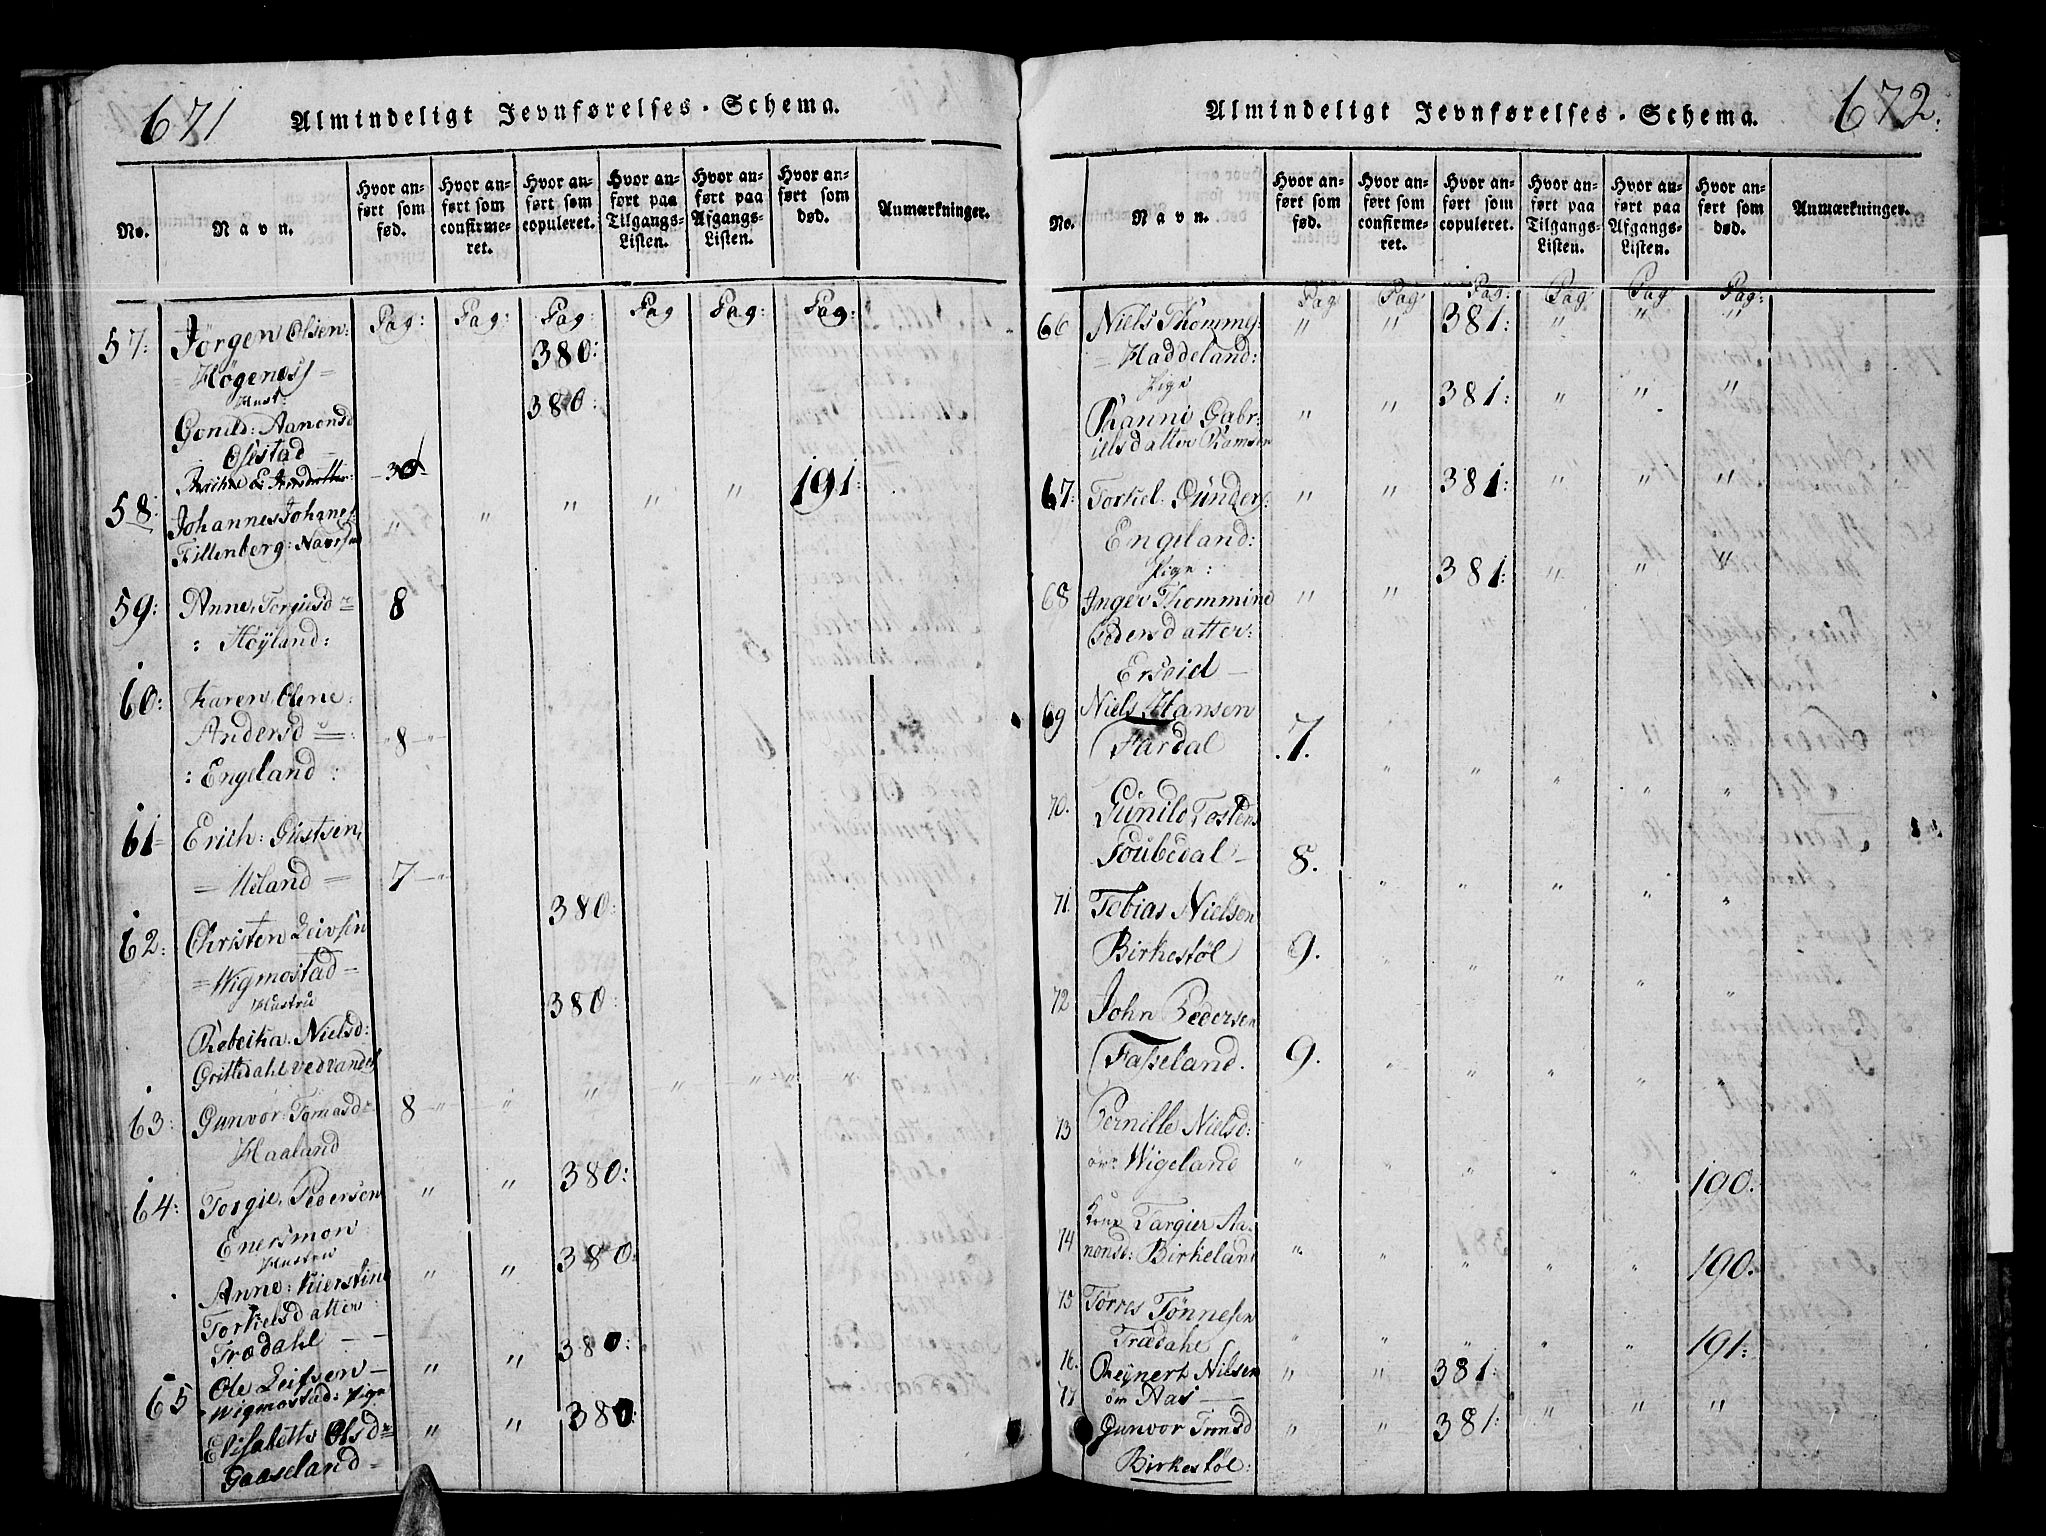 671
Almindeligt Jevnførelses-Schema.
No.
Navn.
Hvor an-
ført som
fød.
Hvor an-
ført som
confirme-
ret.
Hvor an-
ført som
copuleret.
Hvor an-
ført paa
Tilgangs-
Listen.
Hvor an-
ført paa
Afgangs-
Listen.
Hvor an-
ført som
død.
Anmærkninger.
Pag: Pag: Pag: Pag Pag: Pag:
57: Jörgen Olsen: 380:
= Högenes =
Hust: 380:
Gonild: Aanonsd
Ösestad
30
58: Johannes Johanes: " " " " " 191:
Fillenberg:
59: Anne Torgiersd 8
: Höyland:
60: Karen Olene:
Andersd =: " 8 "
: Engeland :
61 = Erich: Gustsen,
= = 7 "
62: Christen Leivsen 380:
= Wigmostad =
Hustru
Rebecka Nielsd: 380:
Grittedahl
63: Gunvor Tomasd 8 " " " " " " "
Haaland
64: Torgie Pedersen " " 380:
Enersmon
Hustru
Anne: Kierstine " " 380:
Torkelsdatter
Trædahl
65 Ole Leifsen " " 380:
Wigmostad: Pige
Elisabeth Olsd " " 380:
Gaaseland =
672.
Almindeligt Jevnførelses-Schema.
No.
Navn.
Hvor an-
ført som
fød.
Hvor an-
ført som
confirme-
ret.
Hvor an-
ført som
copuleret.
Hvor an-
ført paa
Tilgangs-
Listen.
Hvor an-
ført paa
Afgangs-
Listen.
Hvor an-
ført som
død.
Anmærkninger.
Pag Pag Pag: Pag Pag Pag:
66 Niels Thommes: " " 381: " " "
= Haddeland:
Pige
Ranni Gabr- " " 381: " " "
ielsdatter
67: Torkel Gunders: " " 381: " " "
Engeland:
Pige:
68 Inger Thommine " " 381: " " "
Pedersdatter:
Erseid
69 Niels Hansen
Fardal .7. " " " " "
70. Gunild Tostens
Foubedal 8. " " " " "
71 Tobias Nielsen
Birkestöl 9. " " " " "
72 John Pedersen
Fasseland. 9. " " " " "
73 Pernille Nielsd:
Wigeland " " " " " 190.
74 Torgier Aa-
nonse: Birkeland " " " " " 190.
75 Törres Tönnesen
Trædahl " " " " " 191:
76. Reÿnert Nilsen " " 381: " " "
77 Aas
Gunvor Tomsd " " 381:
Birkestöl: